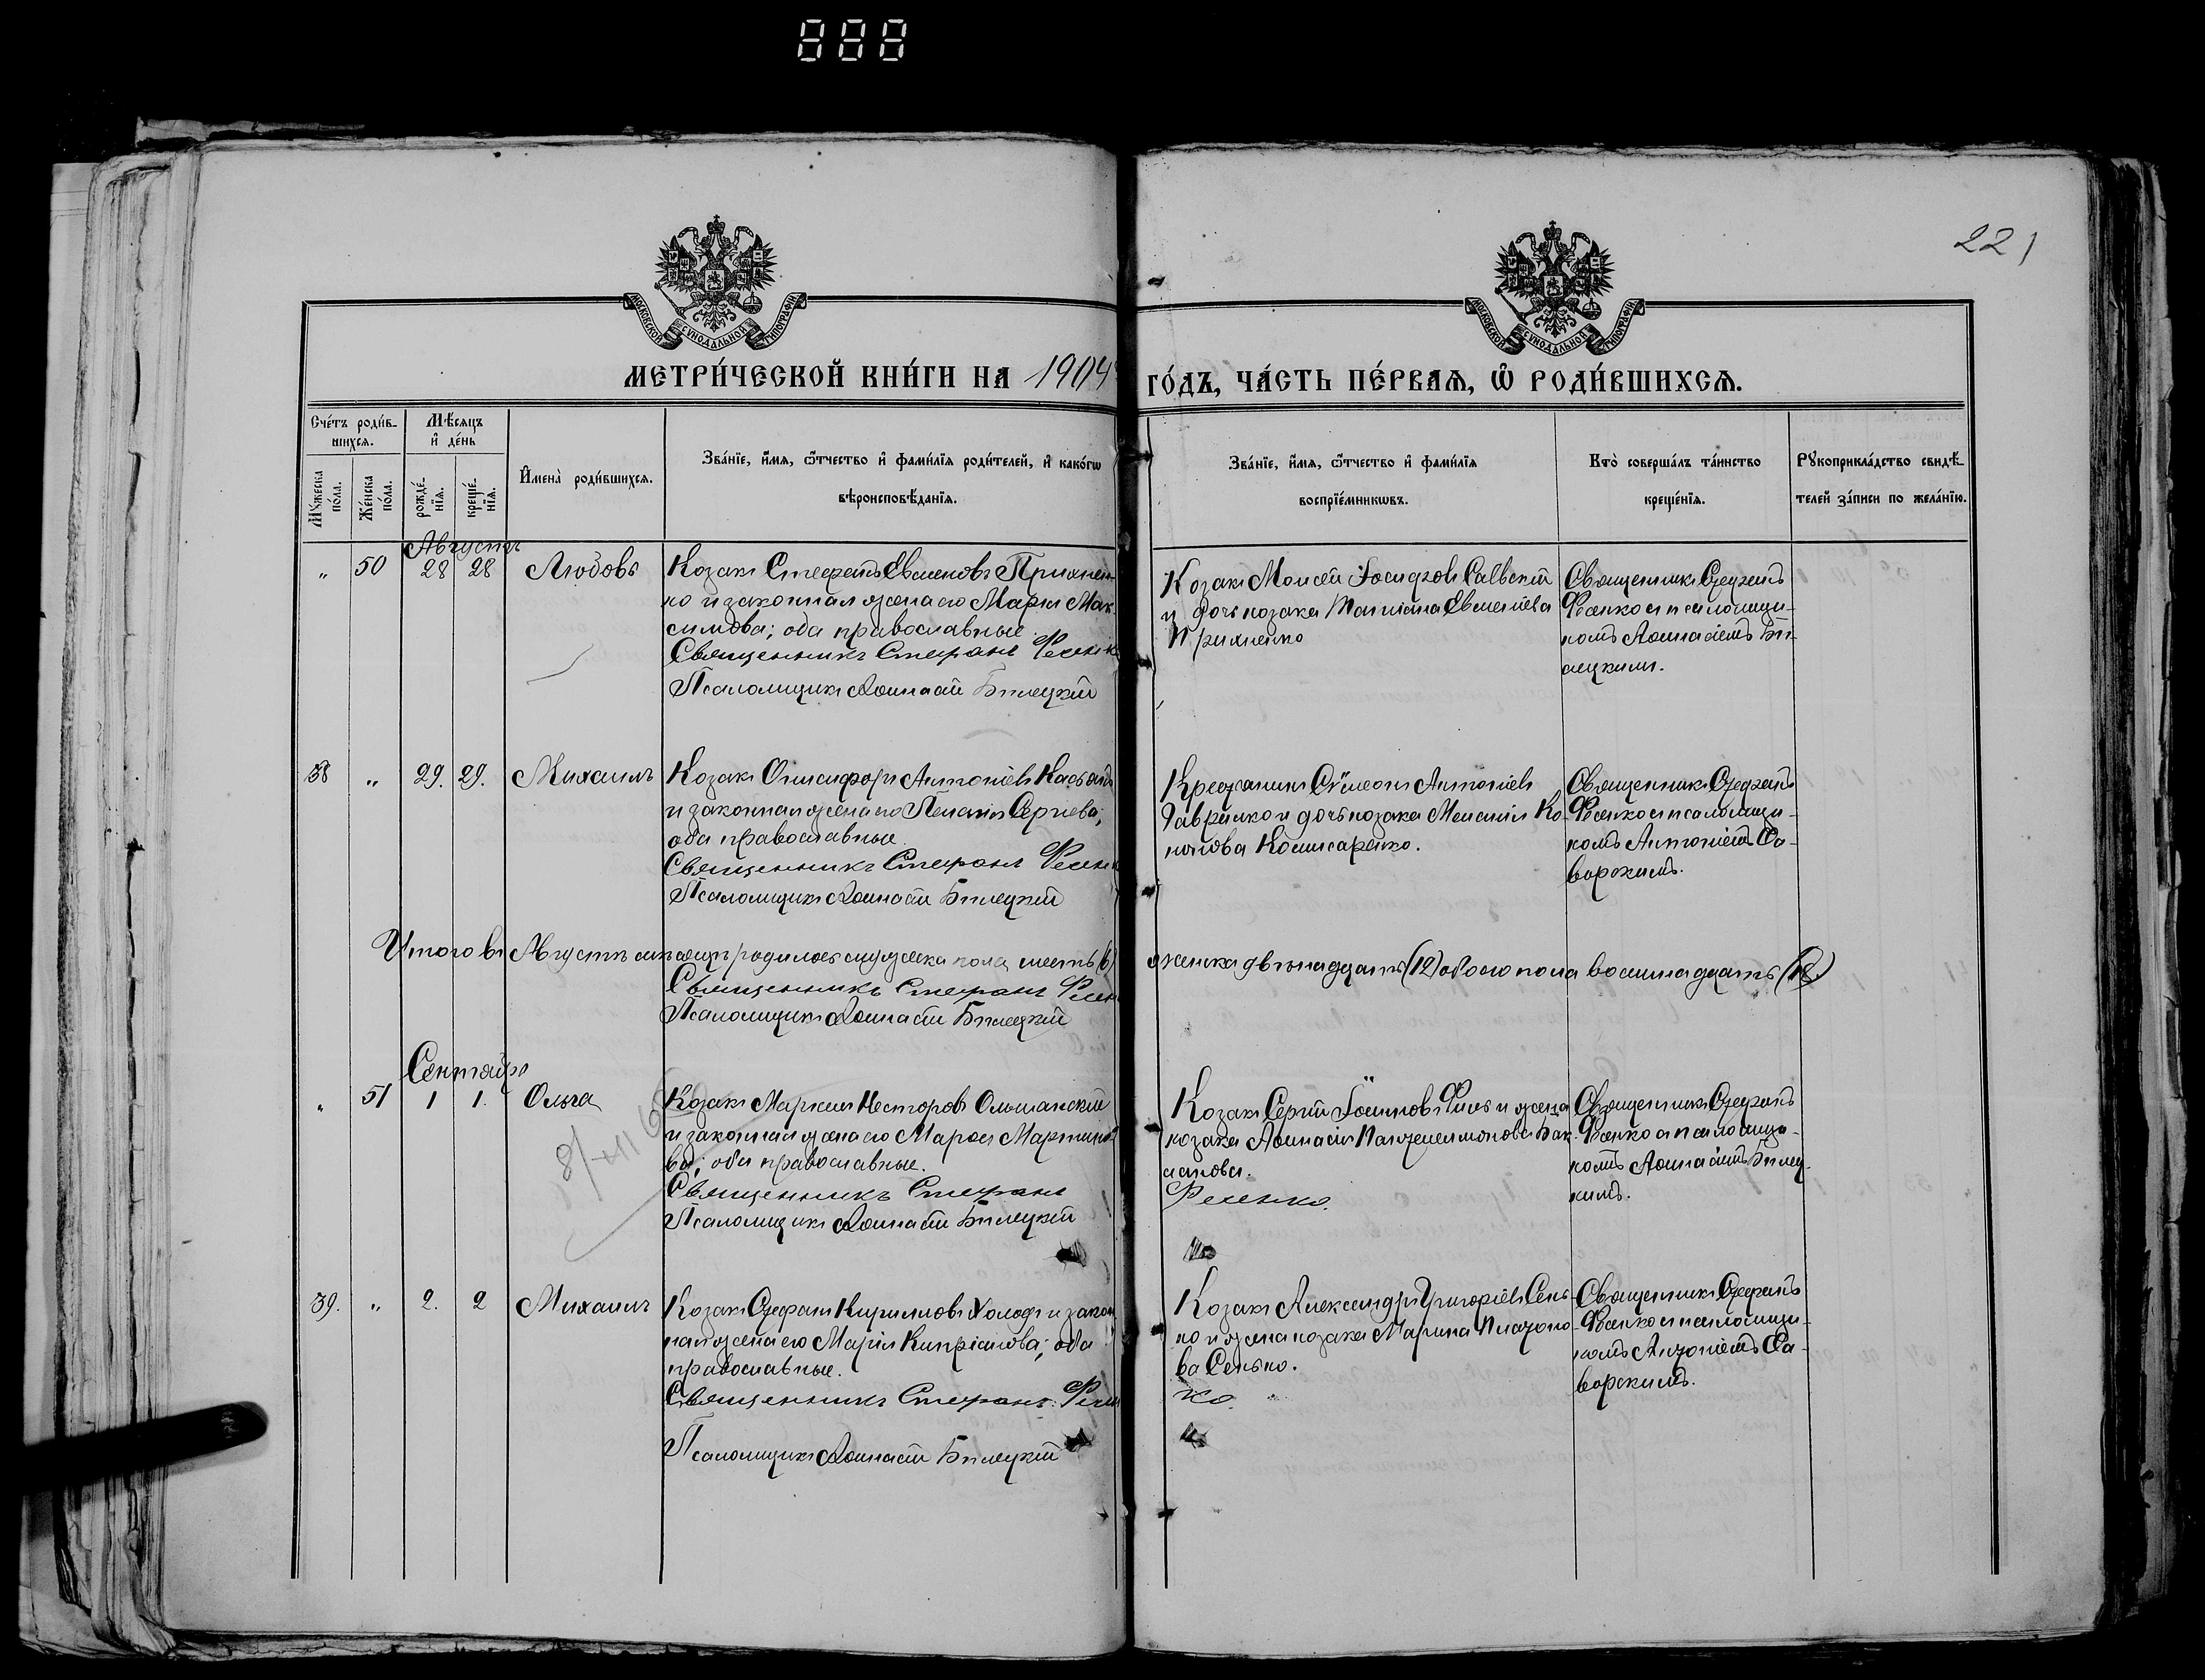 888
221
МОСКОВСКОЙ СѴНОДАЛЬНОЙ ТИПОГРАФІИ
МОСКОВСКОЙ СѴНОДАЛЬНОЙ ТИПОГРАФІИ
МЕТРИ́ЧЕСКОЙ КНИ́ГИ НА 1904
ГО́ДЪ, ЧА́СТЬ ПЕ́РВАЯ, Ѿ РОДИ́ВШИХСЯ.
Сче́тъ роди́в-
шихся.
Мѣ́сяцъ
и҆ де́нь
Мꙋ́жеска по́ла.
Же́нска по́ла.
рожде́-
нїя.
креще́-
нїя.
И҆мена̀ роди́вшихся.
Зва́нїе, и҆́мя, ѻ҆́тчество и҆ фами́лїя роди́телей, и҆ како́гѡ
вѣроисповѣ́данїя.
Зва́нїе, и҆́мя, ѻ҆́тчество и҆ фами́лїя
воспрїе́мникѡвъ.
Кто̀ соверша́лъ та́инство
креще́нїя.
Рꙋкоприкла́дство свидѣ́-
телей за́писи по жела́нїю.
Августъ
„ 50 28 28 Любовь
Козакъ Стефанъ Евменовъ Прихнен-
ко и законная жена его Марія Мак-
симова; оба православные.
Священникъ Стефанъ
Псаломщикъ Аѳанасій Билецкій
Козакъ Моисей Іосифовъ Савскій
и дочь козака Татіана Евменіева
Прихненко
Священникъ Стефанъ
съ псаломщи-
комъ Аѳанасіемъ Би-
лецкимъ.
38 „ 29. 29. Михаилъ
Козакъ Онисифоръ Антоніевъ
и законная жена его Пелагія Сергіева;
оба православные.
Священникъ Стефанъ
Псаломщикъ Аѳанасій Билецкій
Крестьянинъ Сѵмеонъ Антоніевъ
Гаврилко и дочь козака Меланія Ко-
нонова Комисаренко.
Священникъ Стефанъ
съ псаломщи-
комъ Антоніемъ Са-
варскимъ.
Итого въ Августѣ мѣсяцѣ родилось мужеска пола шесть (6)
женска двѣнадцать (12) обоего пола восемнадцать (18)
Священникъ Стефанъ
Псаломщикъ Аѳанасій Билецкій
Сентябрь
„ 51 1 1. Ольга
Козакъ Маркелъ Несторовъ Ольшанскій
и законная жена его Марѳа Мартино-
ва; оба православные.
Священникъ Стефанъ
Псаломщикъ Аѳанасій Билецкій
Козакъ Сергій и жена
козака Аѳанасія Пантелеимонова Бак-
лановы.
Священникъ Стефанъ
съ псаломщи-
комъ Аѳанасіемъ Билец-
кимъ.
39. „ 2. 2 Михаилъ
Козакъ Стефанъ Кирилловъ Холодъ и закон-
ная жена его Марія Кипріанова; оба
православные.
Священникъ Стефанъ
Псаломщикъ Аѳанасій Билецкій
Козакъ Александръ Григоріевъ Сень-
ко и жена козака Марина Платоно-
ва Сенько.
ко.
Священникъ Стефанъ
съ псаломщи-
комъ Антоніемъ Са-
варскимъ.